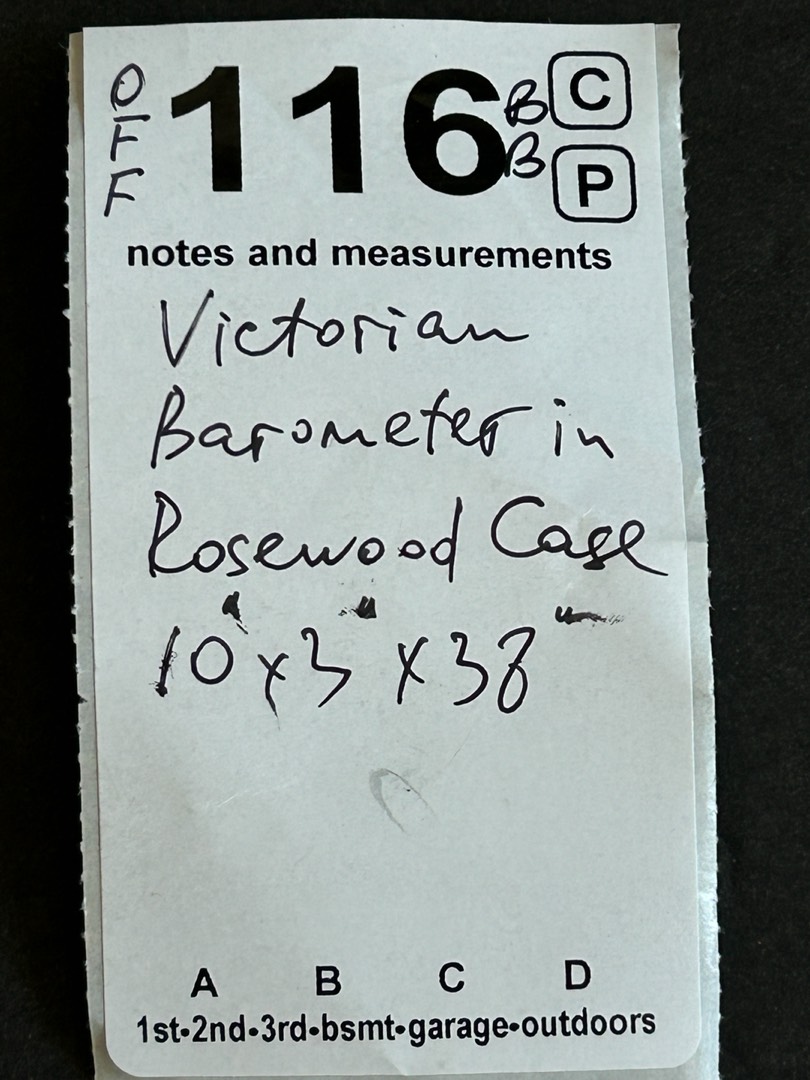 OFF 116 BB C P
notes and measurements
Victorian
Barometer in
Rosewood Case
10" x 3" x 38"
A B C D
1st•2nd•3rd•bsmt•garage•outdoors